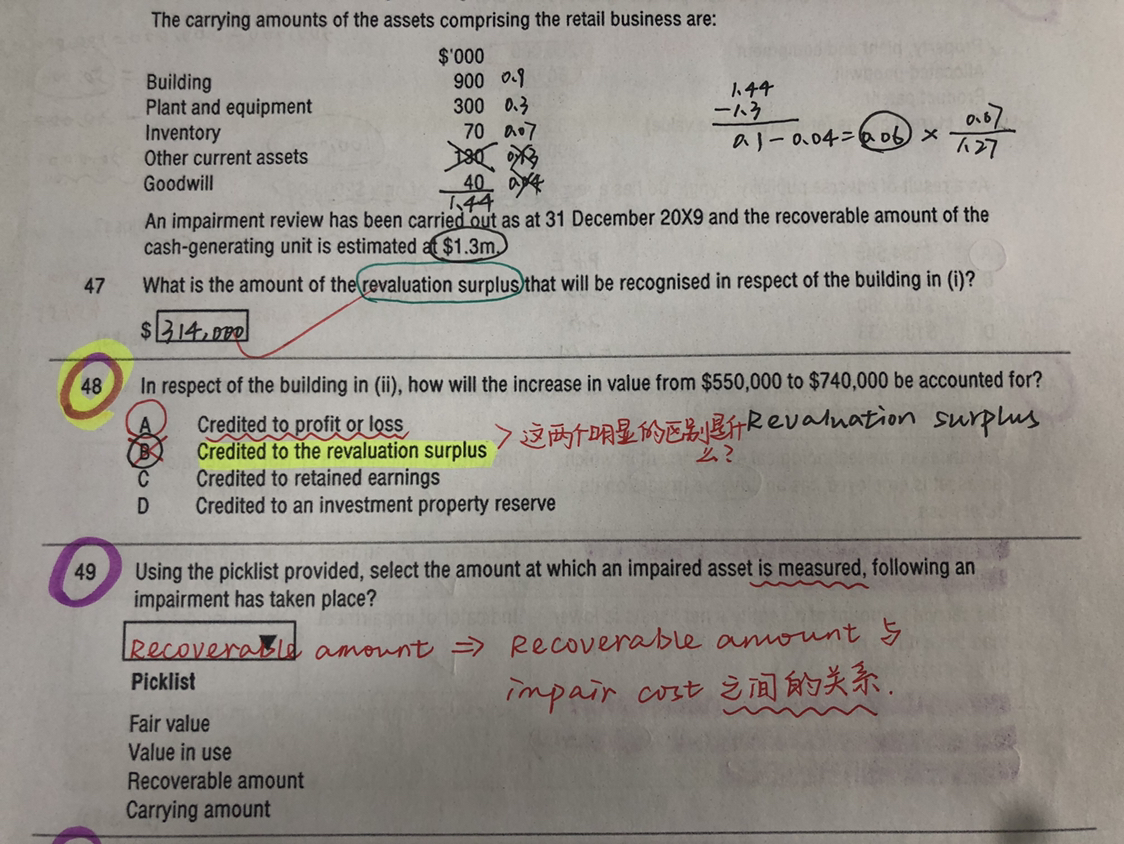 The carrying amounts of the assets comprising the retail business are:
$'000
Building 900 0.9
Plant and equipment 300 0.3
Inventory 70 0.07
Other current assets 130 0.13
Goodwill 40 0.04
1.44
1.44
-1.3
0.1-0.04=0.06 × 0.07
1.27
An impairment review has been carried out as at 31 December 20X9 and the recoverable amount of the
cash-generating unit is estimated at $1.3m.
47 What is the amount of the revaluation surplus that will be recognised in respect of the building in (i)?
$ 314,000
48 In respect of the building in (ii), how will the increase in value from $550,000 to $740,000 be accounted for?
A Credited to profit or loss
B Credited to the revaluation surplus
C Credited to retained earnings
D Credited to an investment property reserve
这两个明显的区别是什
么?
Revaluation surplus
49 Using the picklist provided, select the amount at which an impaired asset is measured, following an
impairment has taken place?
Recoverable amount ⇒ Recoverable amount 与
impair cost 之间的关系.
Picklist
Fair value
Value in use
Recoverable amount
Carrying amount